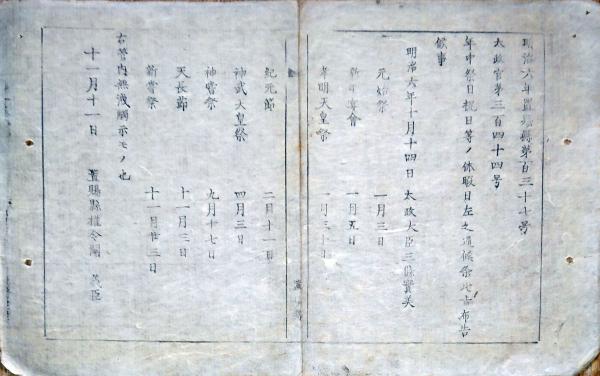 明治六年置賜縣第百三十七号
太政官第三百四十四号
年中祭日祝日等ノ休暇日左之通候條此旨布告
候事
明治六年十月十四日 太政大臣三條實美
元始祭 一月三日
新年宴會 一月五日
孝明天皇祭 一月三十日
紀元節 二月十一日
神武天皇祭 四月三日
神嘗祭 九月十七日
天長節 十一月三日
新嘗祭 十一月廿三日
右管内無洩觸示モノ也
十一月十一日 置賜縣權令關 義臣
置賜縣